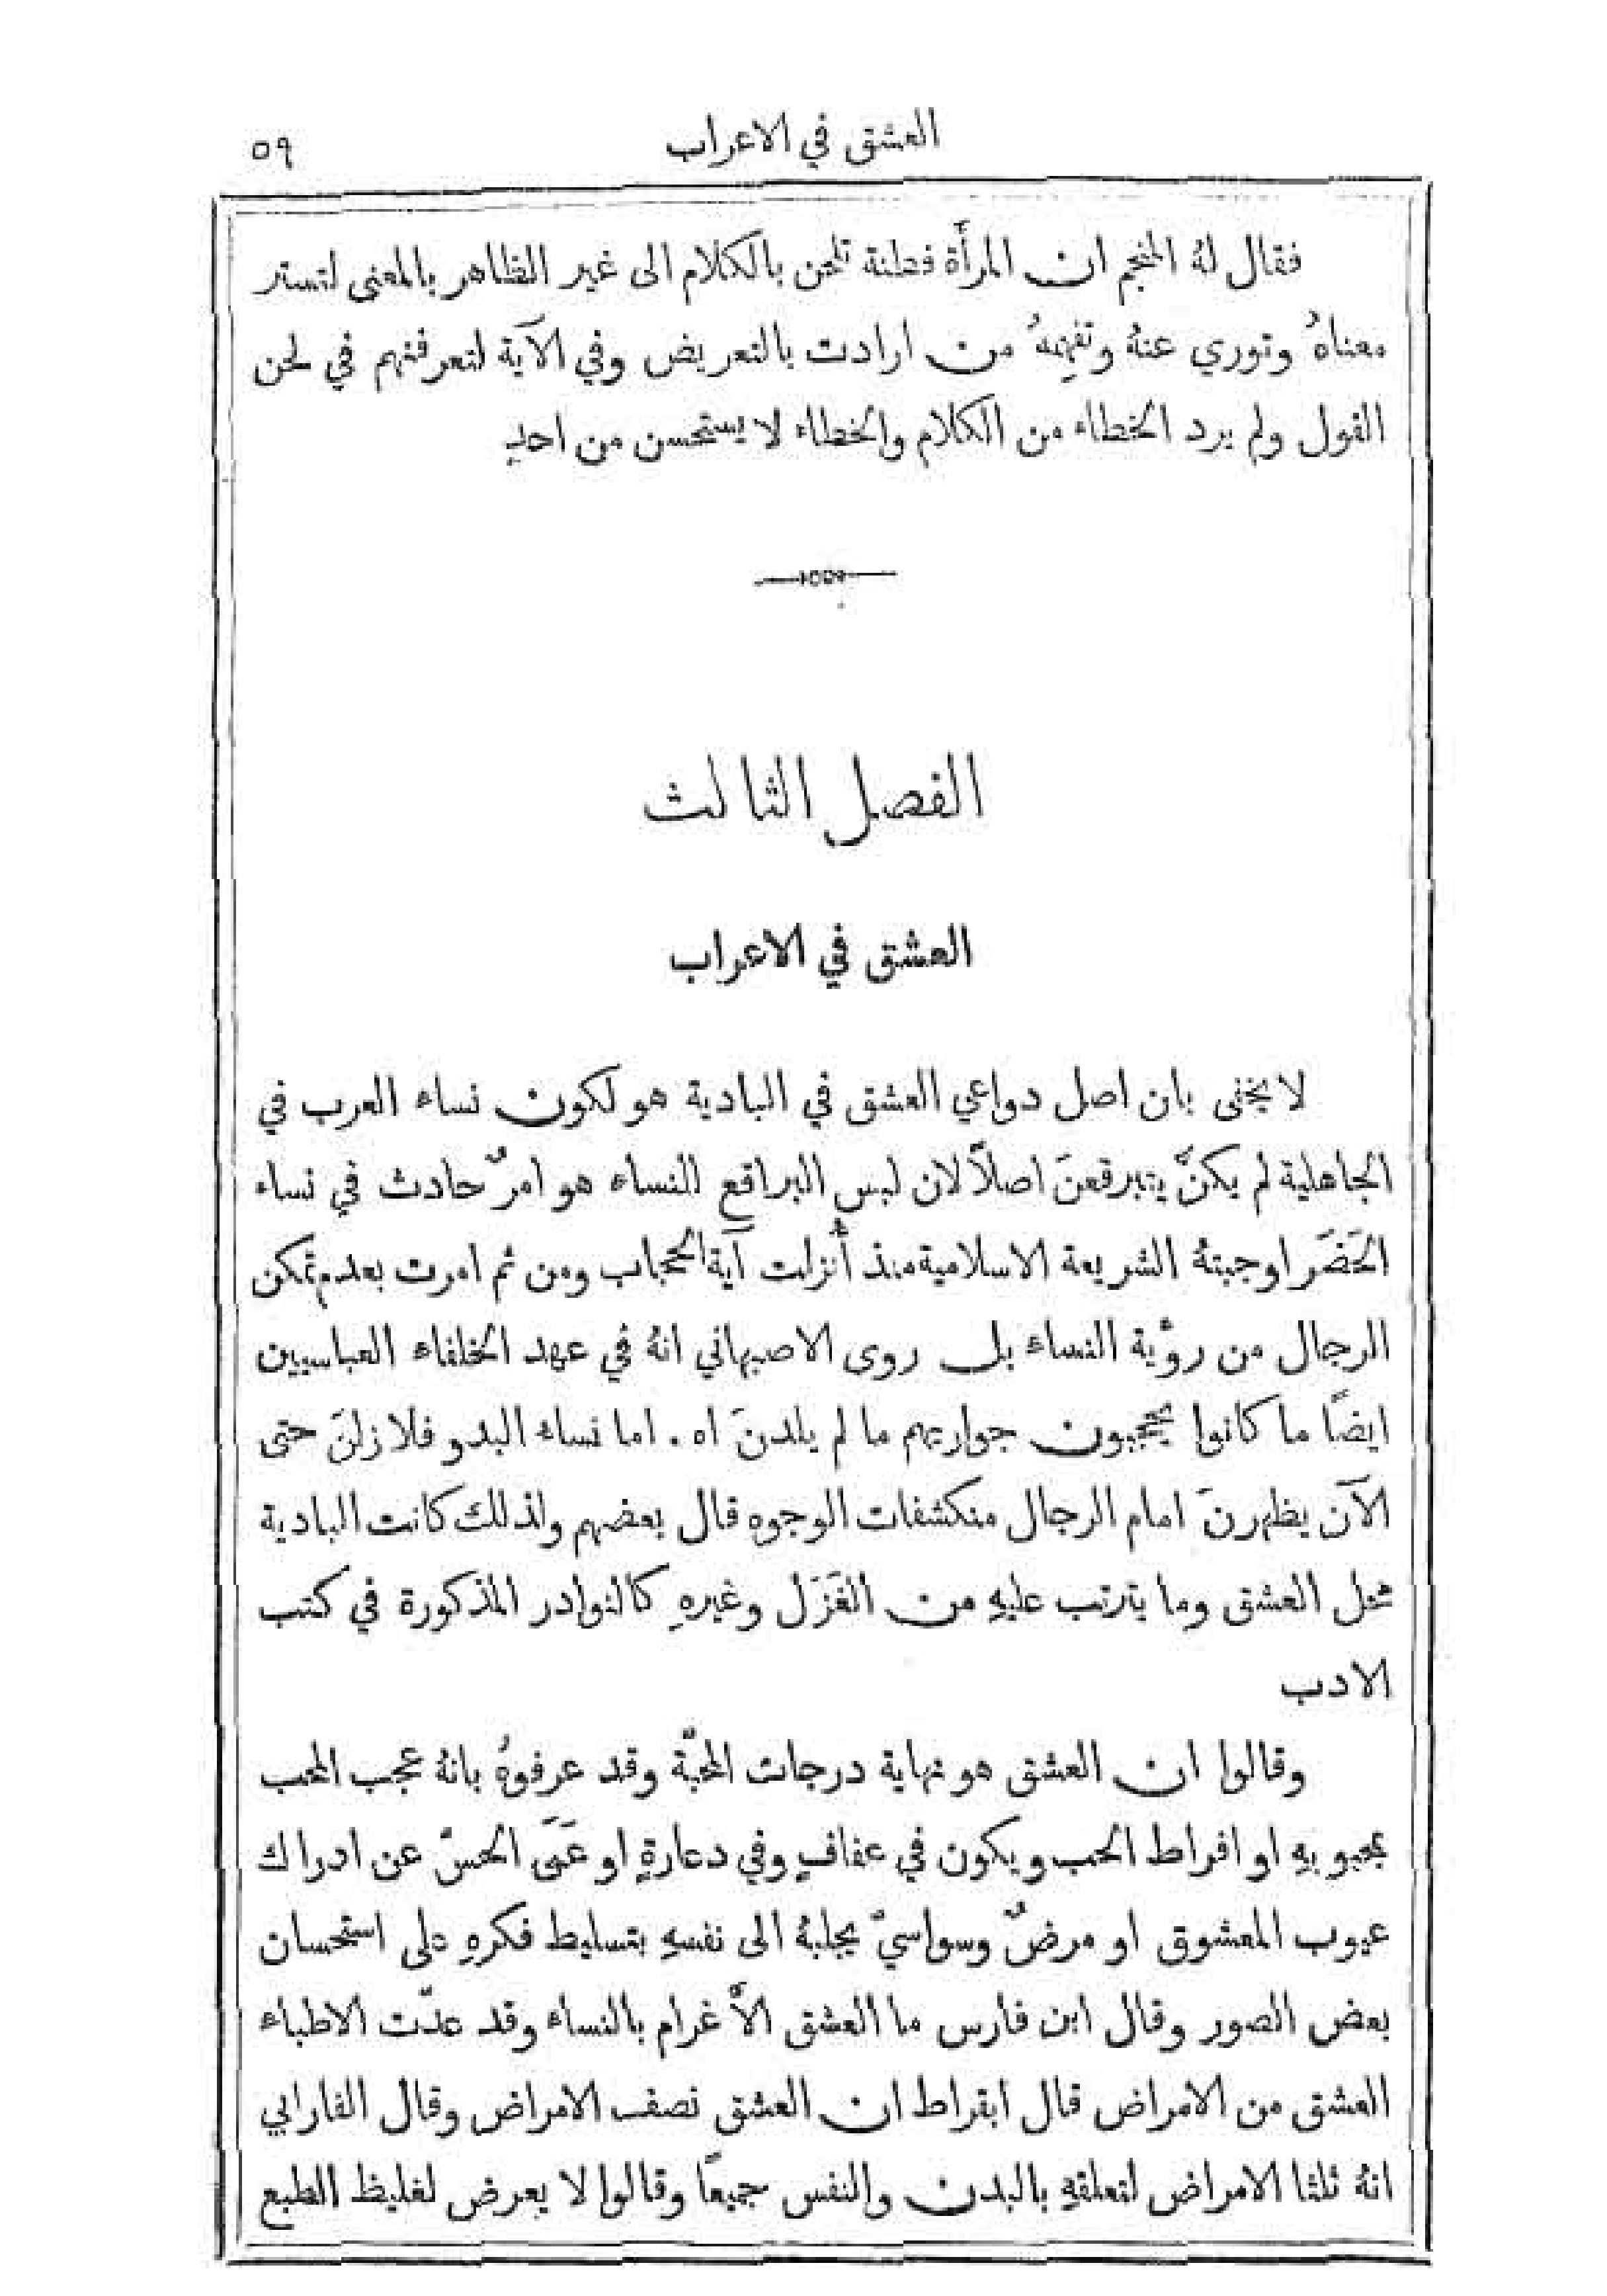 العشق في الاعراب
٥٩
فقال لهُ المنجم ان المرأَة فطنة تلحن بالكلام الى غير الظاهر بالمعنى لتستر
معناهُ وتوري عنهُ وتفهِمهُ من ارادت بالتعريض وفي الآية لتعرفنهم في لحن
القول ولم يرد الخطاء من الكلام والخطاء لا يستحسن من احدٍ
الفصل الثالث
العشق في الاعراب
لا يخفى بان اصل دواعي العشق في البادية هو لكون نساء العرب في
الجاهلية لم يكنَّ يتبرقعنَ اصلاً لان لبس البراقع للنساء هو امرٌ حادث في نساء
الحَضَر اوجبتهُ الشريعة الاسلامية منذ أُنزلت آية الحجاب ومن ثم امرت بعدم تمكن
الرجال من رؤْية النساء بل روى الاصبهاني انهُ في عهد الخلفاء العباسيين
ايضًا ما كانوا يحجبون جواريهم ما لم يلدنَ اه . اما نساء البدو فلا زلنَ حتى
الآن يظهرنَ امام الرجال منكشفات الوجوهِ قال بعضهم ولذلك كانت البادية
محل العشق وما يترتب عليهِ من الغَزَل وغيرهِ كالنوادر المذكورة في كتب
الادب
وقالوا ان العشق هو نهاية درجات المحبَّة وقد عرفوهُ بانهُ عجب المحب
بمحبوبهِ او افراط الحب ويكون في عفافٍ وفي دعارةٍ او عَمَى الحسّ عن ادراك
عيوب المعشوق او مرضٌ وسواسيّ يجلبهُ الى نفسهِ بتسليط فكرهِ على استحسان
بعض الصور وقال ابن فارس ما العشق الاَّ غرام بالنساء وقد عدّت الاطباء
العشق من الامراض قال ابقراط ان العشق نصف الامراض وقال الفارابي
انهُ ثلثا الامراض لتعلقهِ بالبدن والنفس جميعًا وقالوا لا يعرض لغليظ الطبع